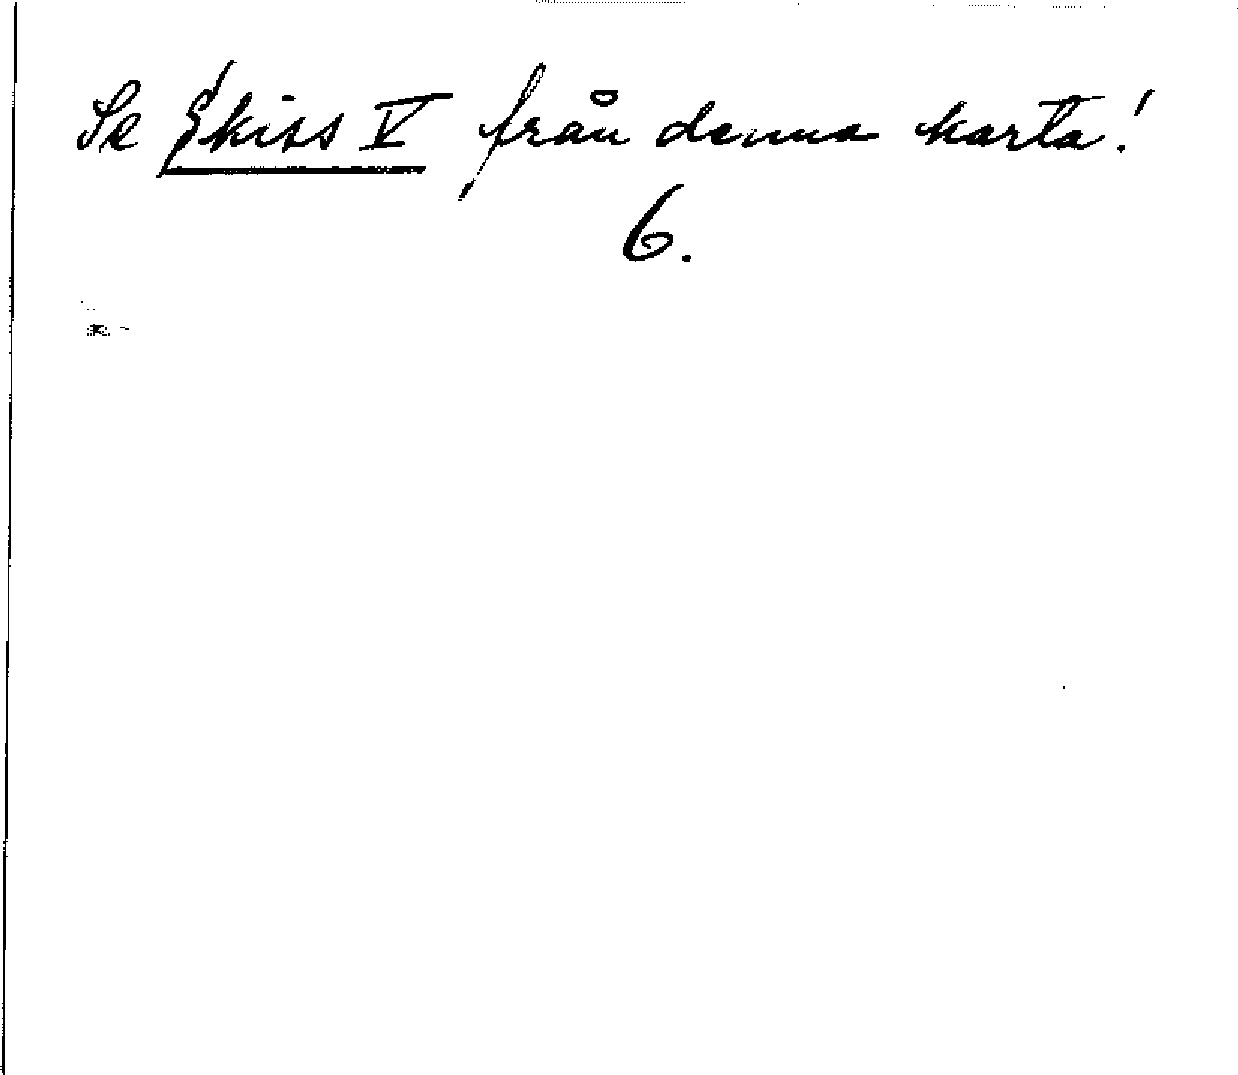 Se Skiss V från denna karta!
6.